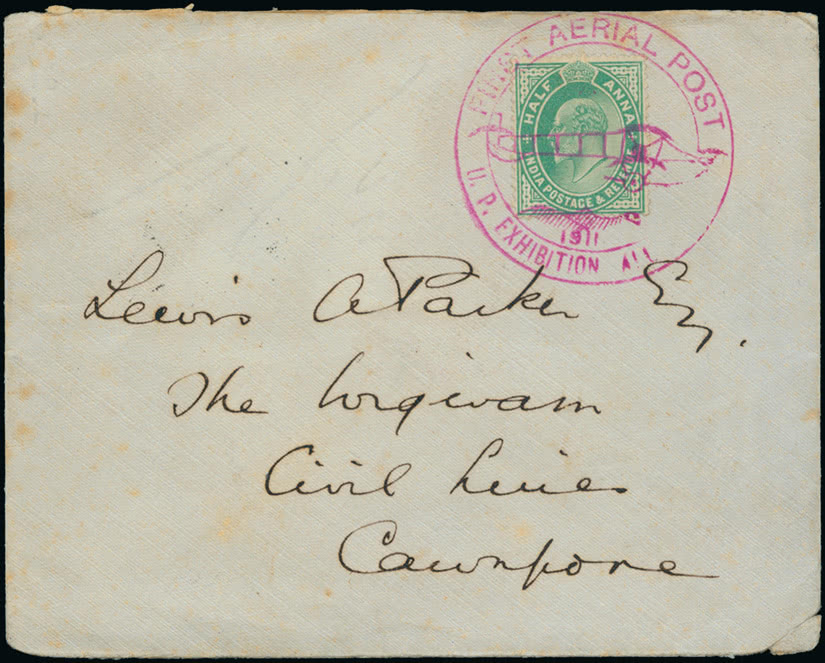 FIRST AERIAL POST
HALF ANNA
INDIA POSTAGE & REVENUE
1911
U. P. EXHIBITION ALL
Lewis A Parker Esq.
The Wigwam
Civil Lines
Cawnpore